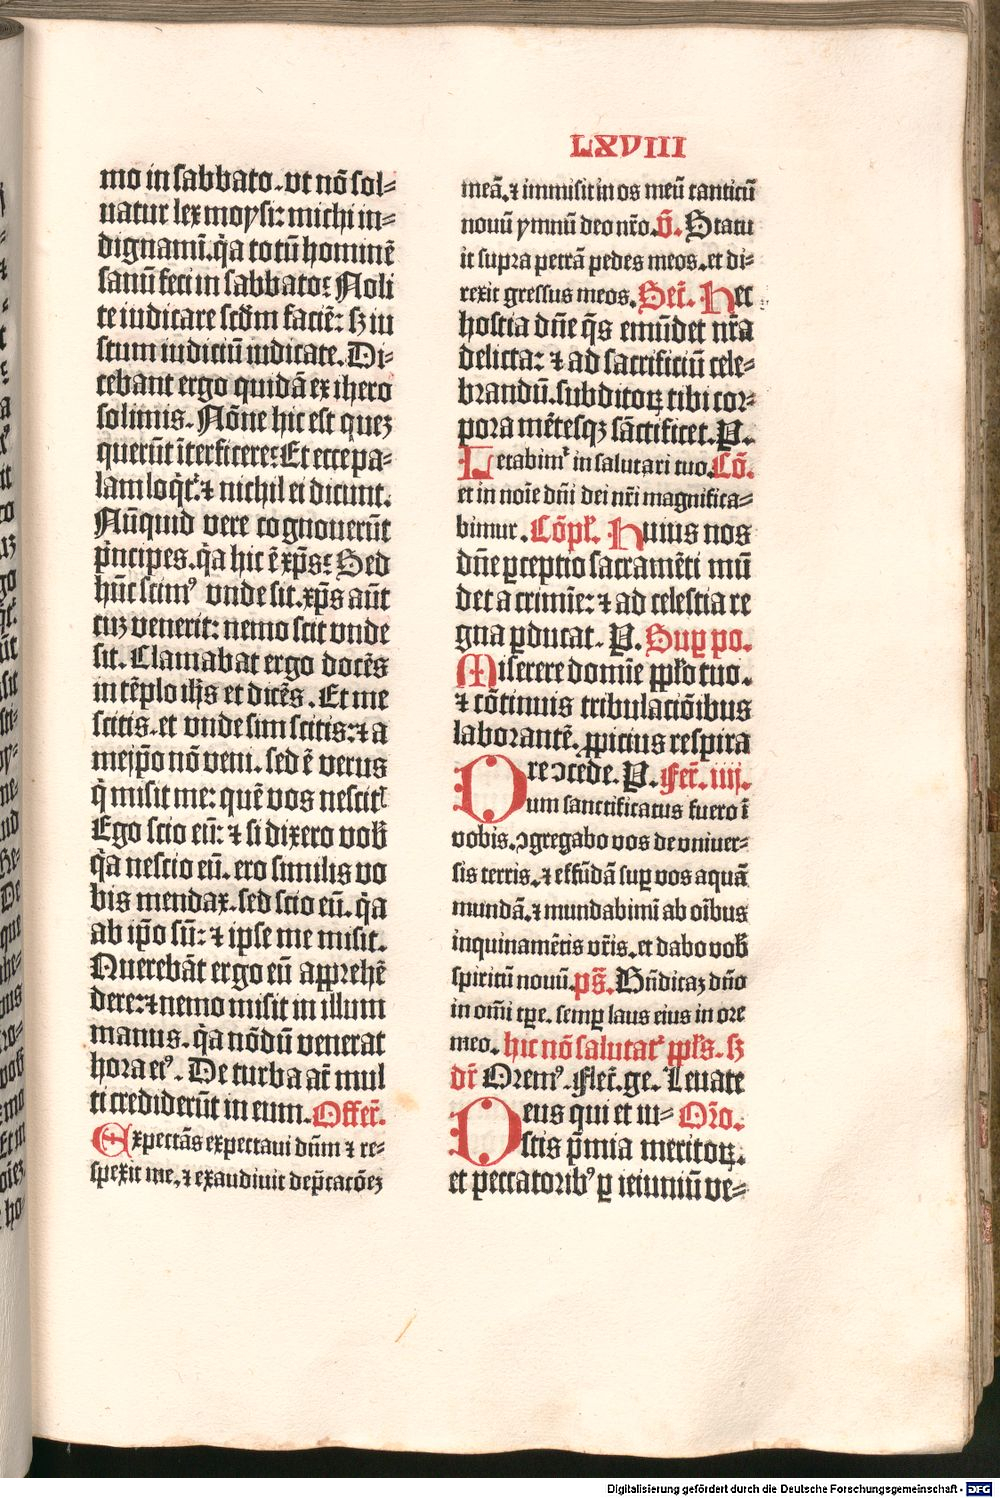 LXVIII
mo in sabbato. vt nõ sol⸗
uatur lex moysi: michi in⸗
dignamĩ. q̃a totũ hominẽ
sanũ feci in sabbato: Noli
te iudicare scd̃m faciẽ: sꝫ iu
stum iudiciũ iudicate. Di⸗
cebant ergo quidã ex ihero
solimis. Nõne hic est quez
querũt ĩterficere: Et ecce pa⸗
lam loq̃tᷣ. ⁊ nichil ei dicunt.
Nũquid vere cognouerũt
p̃ncipes. q̃a hic ẽ xp̃s: Sed
hũc scimꝰ vnde sit. xp̃s aũt
cuz venerit: nemo scit vnde
sit. Clamabat ergo docẽs
in tẽplo ih̃s et dicẽs. Et me
scitis. et vnde sim scitis: ⁊ a
meip̃o nõ veni. sed ẽ verus
q̃ misit me: quẽ vos nescitᷣ
Ego scio eũ: ⁊ si dixero vob̃
q̃a nescio eũ. ero similis vo
bis mendax. sed scio eũ. q̃a
ab ip̃o sũ: ⁊ ipse me misit.
Querebãt ergo eũ apprehẽ
dere: ⁊ nemo misit in illum
manus. q̃a nõdũ venerat
hora eiꝰ. De turba at̃ mul
ti crediderũt in eum. Offer̃.
Expectãs expectaui dñm ⁊ re⸗
spexit me. ⁊ exaudiuit dep̃catõez
meã. ⁊ immisit in os meũ canticũ
nouũ ymnũ deo nr̃o. v̄. Statu
it supra petrã pedes meos. et di⸗
rexit gressus meos. Secr̃. Hec
hostia dñe q̃s emũdet nr̃a
delicta: ⁊ ad sacrificiũ cele⸗
brandũ. subditoꝝ tibi cor⸗
pora mẽtesqꝫ sãctificet. P.
Letabimᷣ in salutari tuo. Cõ.
et in noĩe dñi dei nr̃i magnifica⸗
bimur. Cõpl̃. Huius nos
dñe ꝑceptio sacramẽti mũ
det a crimĩe: ⁊ ad celestia re
gna ꝑducat. P. Suꝑ po.
Miserere domĩe ppl̃o tuo.
⁊ cõtinuis tribulaciõibus
laborantẽ. ꝓpicius respira
re ↄcede. P. Fer̃. iiij.
Dum sanctificatus fuero ĩ
vobis. ↄgregabo vos de vniuer⸗
sis terris. ⁊ effũdã suꝑ vos aquã
mundã. ⁊ mundabimĩ ab oĩbus
inquinamẽtis vr̃is. et dabo vob̃
spiritũ nouũ. ps̃. Bñdicaz dño
in omĩ tꝑe. semꝑ laus eius in ore
meo. hic nõ salutatᷣ ppl̃s. sꝫ
dr̃ Oremꝰ. Flect̃. ge. Leuate
Deus qui et iu⸗ Or̃o.
stis p̃mia meritoꝝ.
et peccatoribꝰ ꝑ ieiuniũ ve⸗
Digitalisierung gefördert durch die Deutsche Forschungsgemeinschaft - DFG